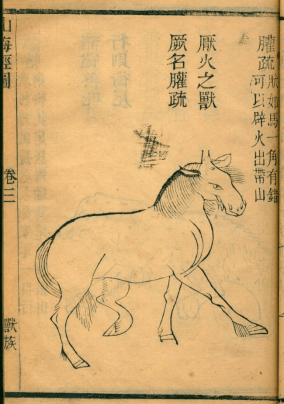 䑏疏
狀如馬一角有錯
可以辟火出帶山
厭火之獸
厥名䑏疏
山海經圖
卷三
獸族